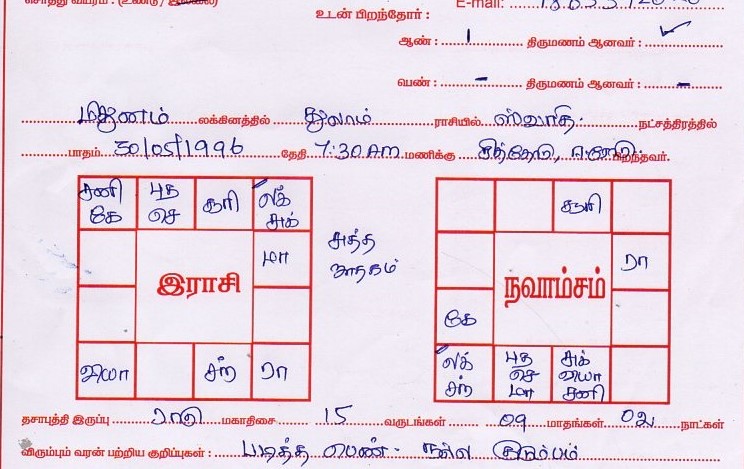 சொத்து விபரம் : (உண்டு / இல்லை)
E-mail:
உடன் பிறந்தோர் :
ஆண் : 1 திருமணம் ஆனவர் : ✓
பெண் : - திருமணம் ஆனவர் : -
மிதுனம் லக்கினத்தில் துலாம் ராசியில் ஸ்வாதி நட்சத்திரத்தில்
பாதம் 30/05/1996 தேதி 7:30 AM மணிக்கு சித்தோடு, ஈரோடு பிறந்தவர்.
சனி புத சூரி லக் சூரி
கே செ சுக்
மா சுத்த ரா
ஜாதகம்
இராசி நவாம்சம்
கே
லக் புத சுக்
குரு சந் ரா சந் செ குரு
மா சனி
தசாபுத்தி இருப்பு ராகு மகாதிசை 15 வருடங்கள் 09 மாதங்கள் 02 நாட்கள்
விரும்பும் வரன் பற்றிய குறிப்புகள் : படித்த பெண். நல்ல குடும்பம்